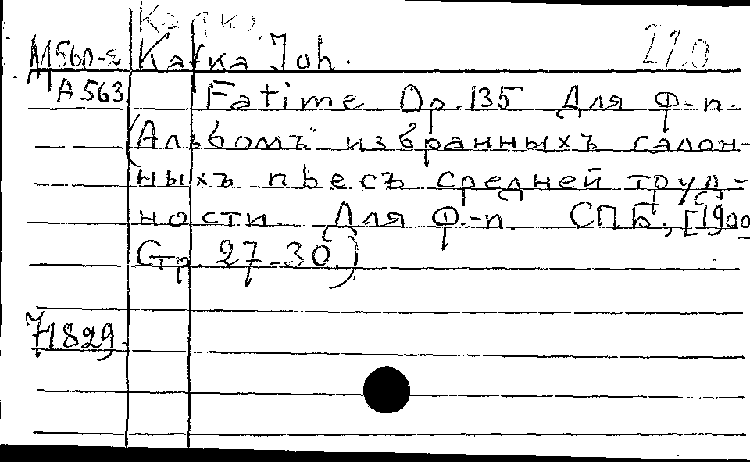 Кафка
М560-2 Kafka Joh. 220
А563 Fatime Op. 135 Для Ф-п.
(Альбомъ избранныхъ салон-
ныхъ пьесъ средней труд-
ности. Для Ф.-п. СПБ, [1900
Стр. 27-30.)
71829